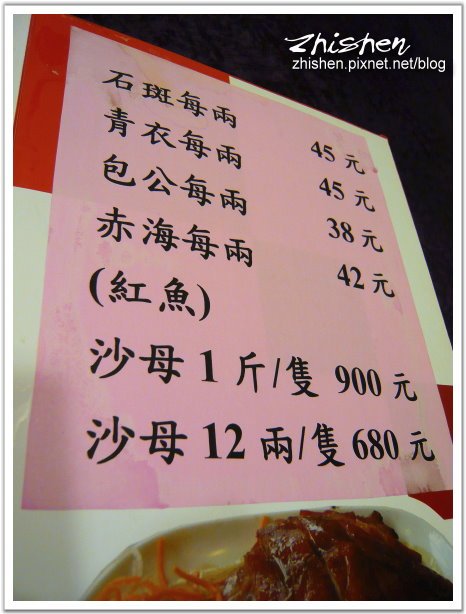 Zhishen
zhishen.pixnet.net/blog
石斑每兩 45 元
青衣每兩 45 元
包公每兩 38 元
赤海每兩 42 元
(紅魚)
沙母 1 斤/隻 900 元
沙母 12 兩/隻 680 元